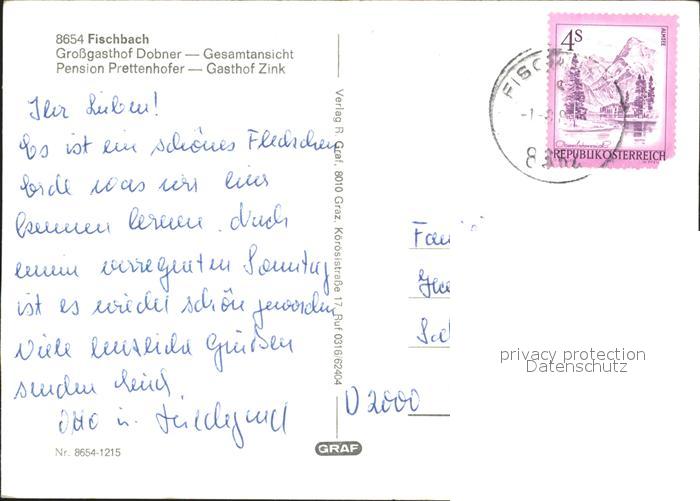 8654 Fischbach
Großgasthof Dobner — Gesamtansicht
Pension Prettenhofer — Gasthof Zink
4S
ALMSEE
FISCH
REPUBLIK ÖSTERREICH
Ihr Lieben!
Es ist ein schönes Fleckchen
Erde was wir hier
kennen lernen. Nach
einem verregneten Sonntag
ist es wieder schön geworden
Viele herzliche Grüßen
senden Euch
Otto u.
Verlag R. Graf, 8010 Graz, Körösistraße 17, Ruf 0316/62404
D 2000
privacy protection
Datenschutz
Nr. 8654-1215
GRAF